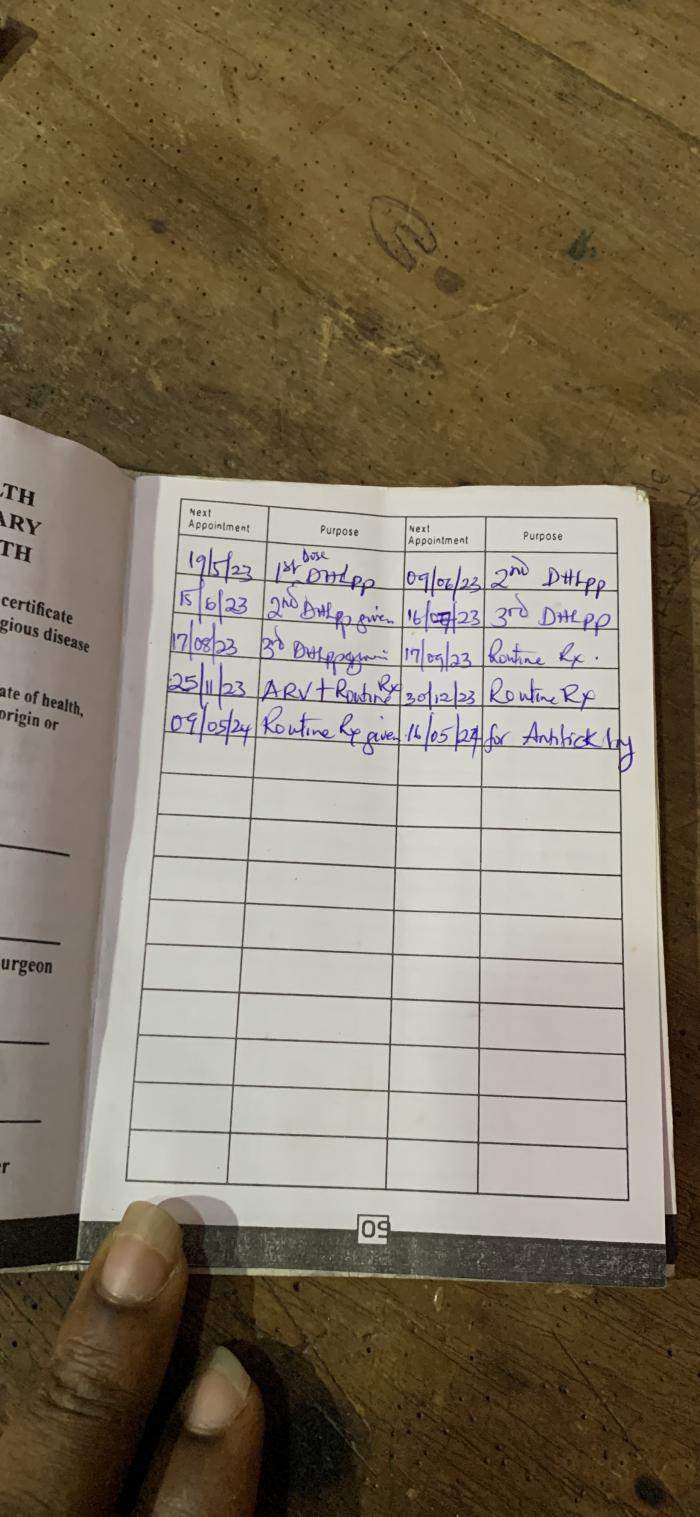 LTH
ARY
TH
certificate
gious disease
ate of health,
origin or
urgeon
r
Next Appointment Purpose Next Appointment Purpose
19/5/23 1st Dose DHLPP 09/06/23 2nd DHLPP
15/6/23 2nd DHLPP given 16/07/23 3rd DHLPP
17/08/23 3rd DHLPP given 17/09/23 Routine Rx.
25/11/23 ARV + Routine Rx 30/12/23 Routine Rx
09/05/24 Routine Rx given 16/05/24 for Antitick
09